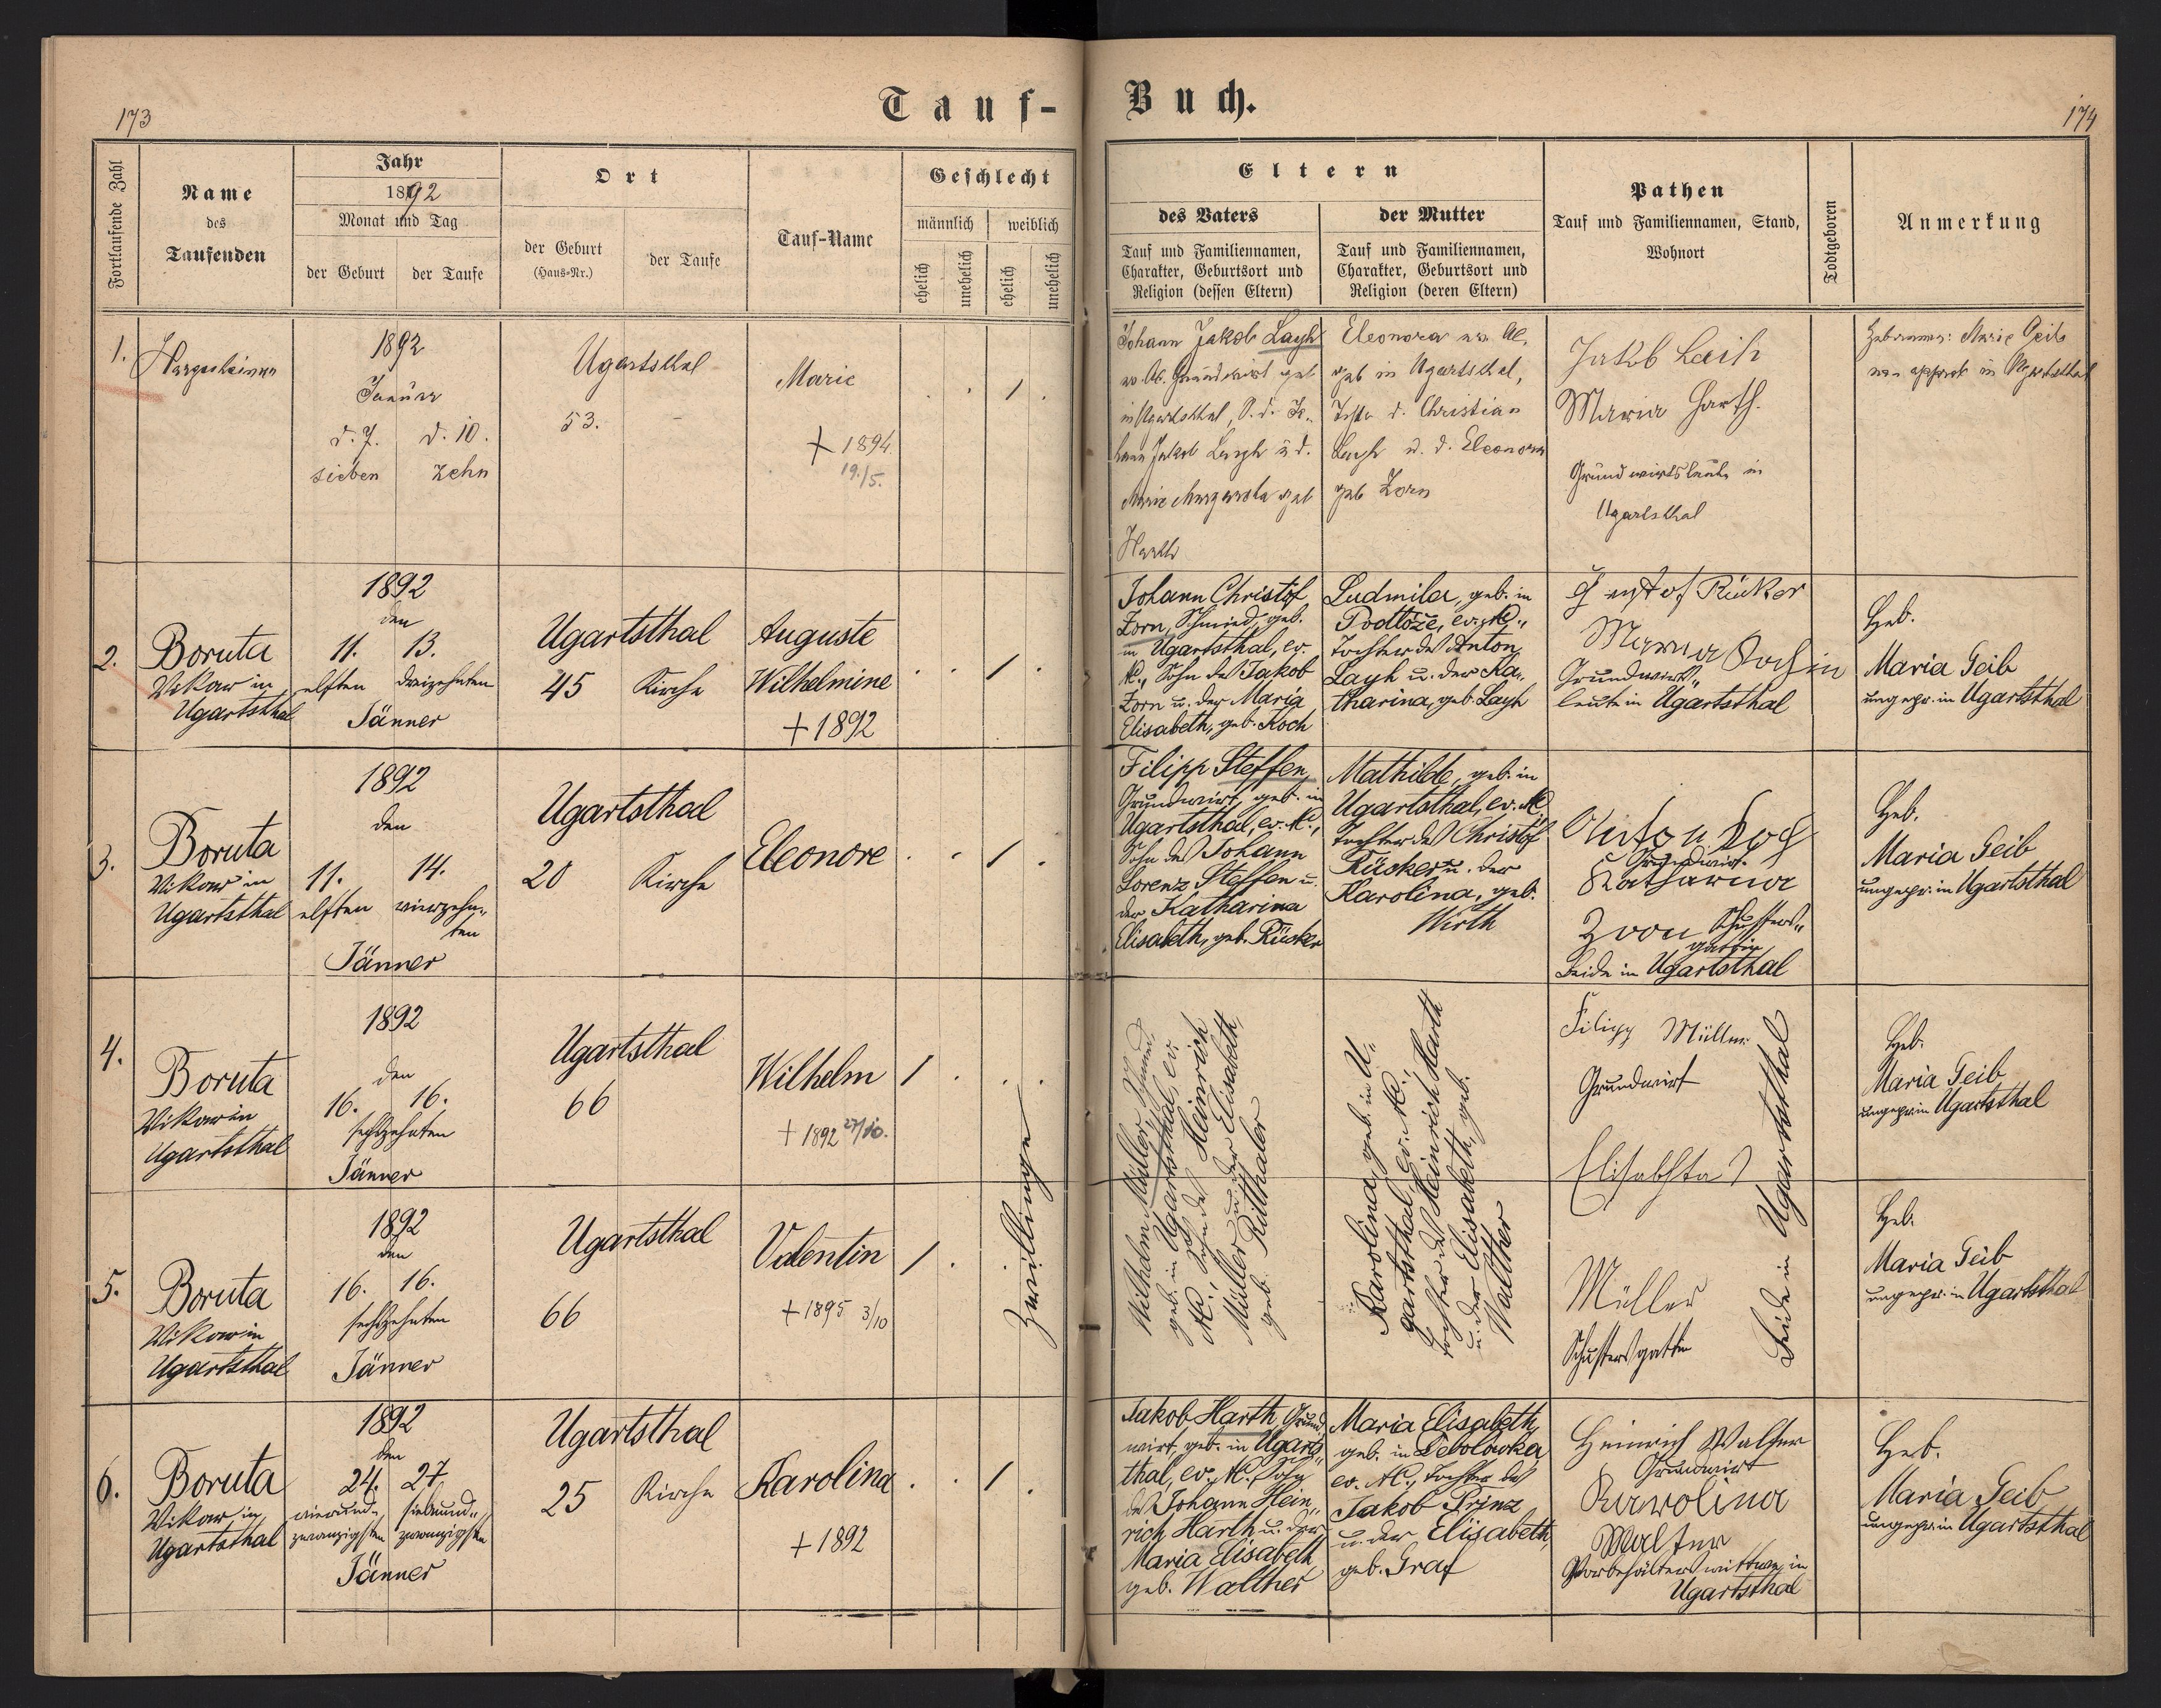 173
Tauf-
Buch.
174
Fortlaufende Zahl
Name
des
Taufenden
Jahr
1892
Monat und Tag
der Geburt
der Taufe
Ort
der Geburt
(Haus-Nr.)
der Taufe
Tauf-Name
Geschlecht
männlich
weiblich
ehelich
unehelich
ehelich
unehelich
Eltern
des Vaters
Tauf und Familiennamen,
Charakter, Geburtsort und
Religion (dessen Eltern)
der Mutter
Tauf und Familiennamen,
Charakter, Geburtsort und
Religion (deren Eltern)
Pathen
Tauf und Familiennamen, Stand,
Wohnort
Todtgeboren
Anmerkung
1.
1892
Januar
d. 7.
d. 10.
sieben
zehn
Ugartsthal
53.
Marie
+ 1894
19./5.
1
Johann Jakob Layh
Eleonora
geb in Ugartsthal,
d. Christian
Layh u. d. Eleonora
geb Zorn
Harth
Jakob Leih
Maria Harth.
Grundwirtsleute in
Ugartsthal
2.
Boruta
Vikar in
Ugartsthal
1892
den
11.
13.
elften
dreizehnten
Jänner
Ugartsthal
45
Kirche
Auguste
Wilhelmine
+ 1892
1
Johann Christof
Zorn, Schmied, geb.
in Ugartsthal, ev.
Sohn des Jakob
Zorn u. der Maria
Elisabeth, geb. Koch
Ludmila, geb. in
Tochter des Anton
Layh u. der Ka-
tharina, geb. Layh
Rücker
Maria Kochin
Grundwirts-
leute in Ugartsthal
Heb.
Maria Geib
ungepr. in Ugartsthal
3.
Boruta
Vikar in
Ugartsthal
1892
den
11.
14.
elften
vierzehn-
ten
Jänner
Ugartsthal
20
Kirche
Eleonore
1
Filipp Steffen,
Grundwirt, geb. in
Ugartsthal, ev. A.C.,
Sohn des Johann
Lorenz Steffen u.
der Katharina
Elisabeth, geb. Rücker
Mathilde, geb. in
Ugartsthal, ev. A.C.
Tochter des Christof
Rücker u. der
Karolina, geb.
Wirth
Anton Koch
Grundwirt.
Katharina
Zorn Schusters-
gattin
beide in Ugartsthal
Heb.
Maria Geib
ungepr. in Ugartsthal
4.
Boruta
Vikar in
Ugartsthal
1892
den
16.
16.
sechszehnten
Jänner
Ugartsthal
66
Wilhelm
+ 1892 27/10.
1
Zwillinge
Wilhelm Müller, Schmied
geb. in Ugartsthal, ev.
A.C., Sohn des Heinrich
Müller u. der Elisabeth,
geb. Ritthaler
Karolina, geb. in U-
gartsthal, ev. A.C.,
Tochter des Heinrich Harth
u. der Elisabeth, geb.
Walther
Filipp Müller
Grundwirt
Elisabetha
Müller
Schustersgattin
Beide in Ugartsthal
Heb.
Maria Geib
ungepr. in Ugartsthal
5.
Boruta
Vikar in
Ugartsthal
1892
den
16.
16.
sechszehnten
Jänner
Ugartsthal
66
Valentin
+ 1895 3/10
1
Heb.
Maria Geib
ungepr. in Ugartsthal
6.
Boruta
Vikar in
Ugartsthal
1892
den
24.
27.
vierund-
zwanzigsten
siebenund-
zwanzigsten
Jänner
Ugartsthal
25
Kirche
Karolina
+ 1892
1
Jakob Harth, Grund-
wirt, geb. in Ugarts-
thal, ev. A.C., Sohn
des Johann Hein-
rich Harth u. der
Maria Elisabeth,
geb. Walther
Maria Elisabeth,
geb. in Debolowka,
ev. A.C., Tochter des
Jakob Prinz
u. der Elisabeth,
geb. Graf
Heinrich Walther
Grundwirt
Karolina
Walter
Vorbehälterswittwe, in
Ugartsthal
Heb.
Maria Geib
ungepr. in Ugartsthal